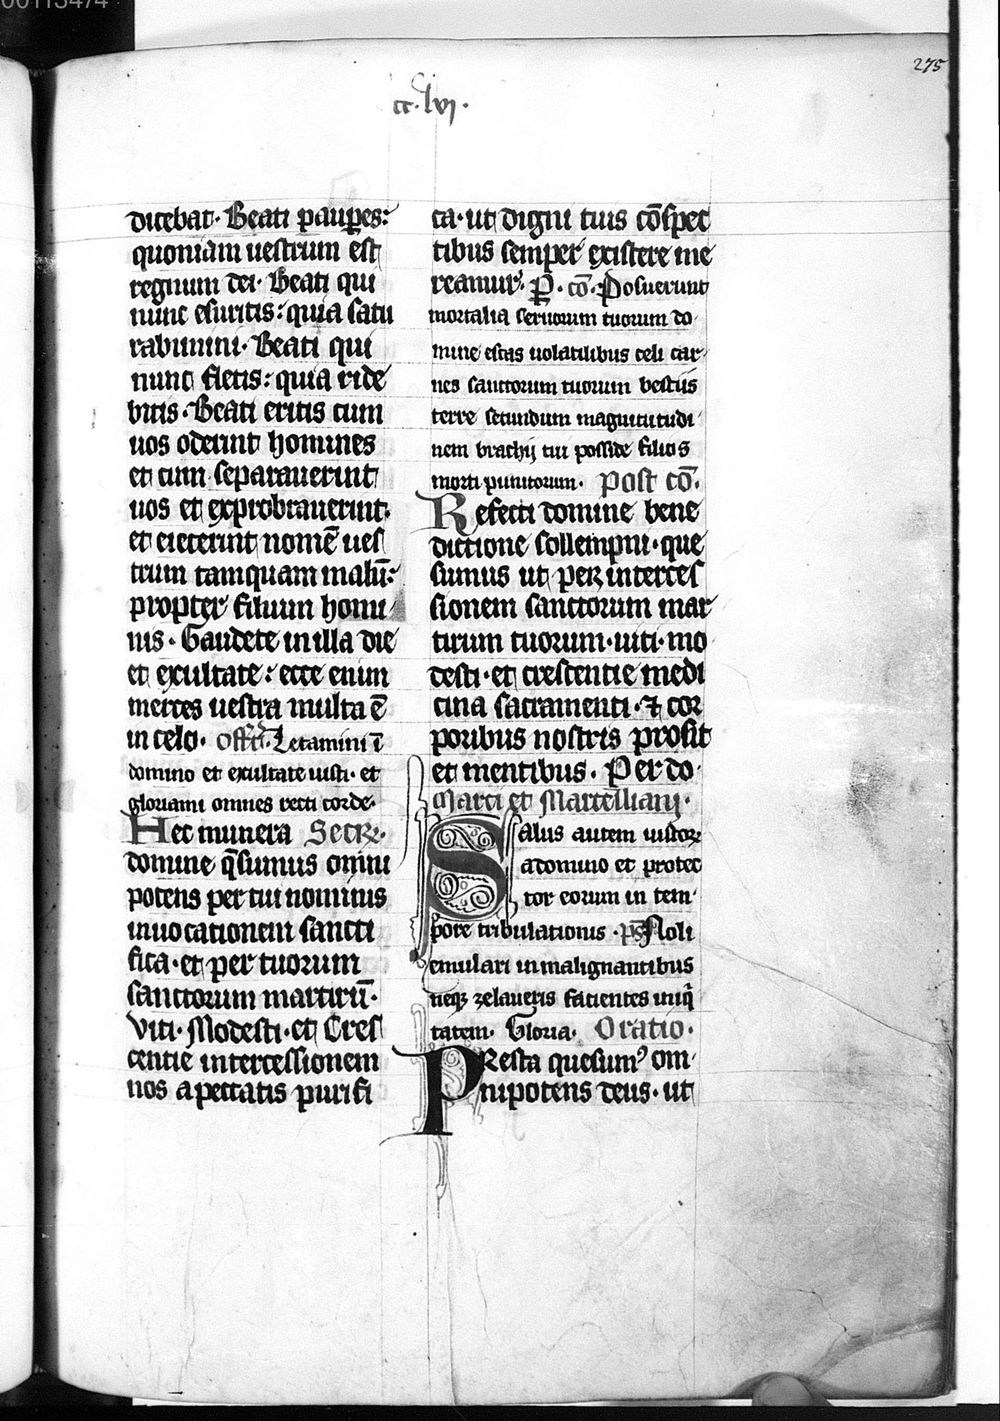 00113474
275
cc·lvi·
dicebat· Beati paup̱es:
quoniam uestrum est
regnum dei· Beati qui
nunc esuritis: quia satu
rabimini· Beati qui
nunc fletis: quia ride
bitis· Beati eritis cum
uos oderint homines
et cum separauerint
uos et exprobrauerint·
et eiecerint nomē ues
trum tamquam malū:
propter filium homi
nis· Gaudete in illa die
et exultate: ecce enim
merces uestra multa ē
in celo· Letamini ī
domino et exultate iusti· et
gloriami omnes recti corde·
Hec munera Secr̄·
domine q̄sumus omni
potens per tui nominis
inuocationem sancti
fica· et per tuorum
sanctorum martirū·
Viti· Modesti· et Cres
centie intercessionem
nos a peccatis purifi
ca· ut digni tuis cōspec
tibus semper existere me
reamur· cō· Posuerunt
mortalia seruorum tuorum do
mine escas uolatilibus celi car
nes sanctorum tuorum bestiis
terre secundum magnitutudi
nem brachij tui posside filios
morti punitorum· post cō·
Refecti domine bene
dictione sollempni· que
sumus ut per interces
sionem sanctorum mar
tirum tuorum· uiti· mo
desti· et crescentie medi
cina sacramenti· ⁊ cor
poribus nostris prosit
et mentibus· Per do·
Marci et Marcelliani·
Salus autem iustoꝝ
a domino et protec
tor eorum in tem
pore tribulationis· p̄s Noli
emulari in malignantibus
neqꝫ zelaueris facientes iniq̄
tatem· Gloria· Oratio·
PResta quesumꝰ om
nipotens deus· ut